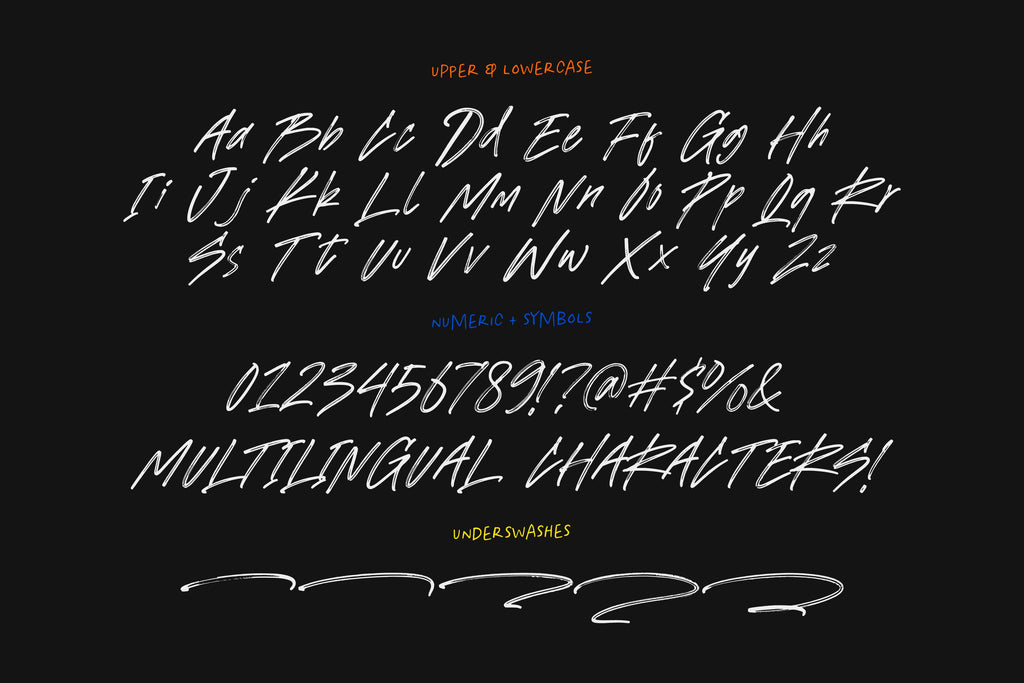 UPPER & LOWERCASE
Aa Bb Cc Dd Ee Ff Gg Hh
Ii Jj Kk Ll Mm Nn Oo Pp Qq Rr
Ss Tt Uu Vv Ww Xx Yy Zz
NUMERIC + SYMBOLS
0123456789!?@#$%&
MULTILINGUAL CHARACTERS!
UNDERSWASHES